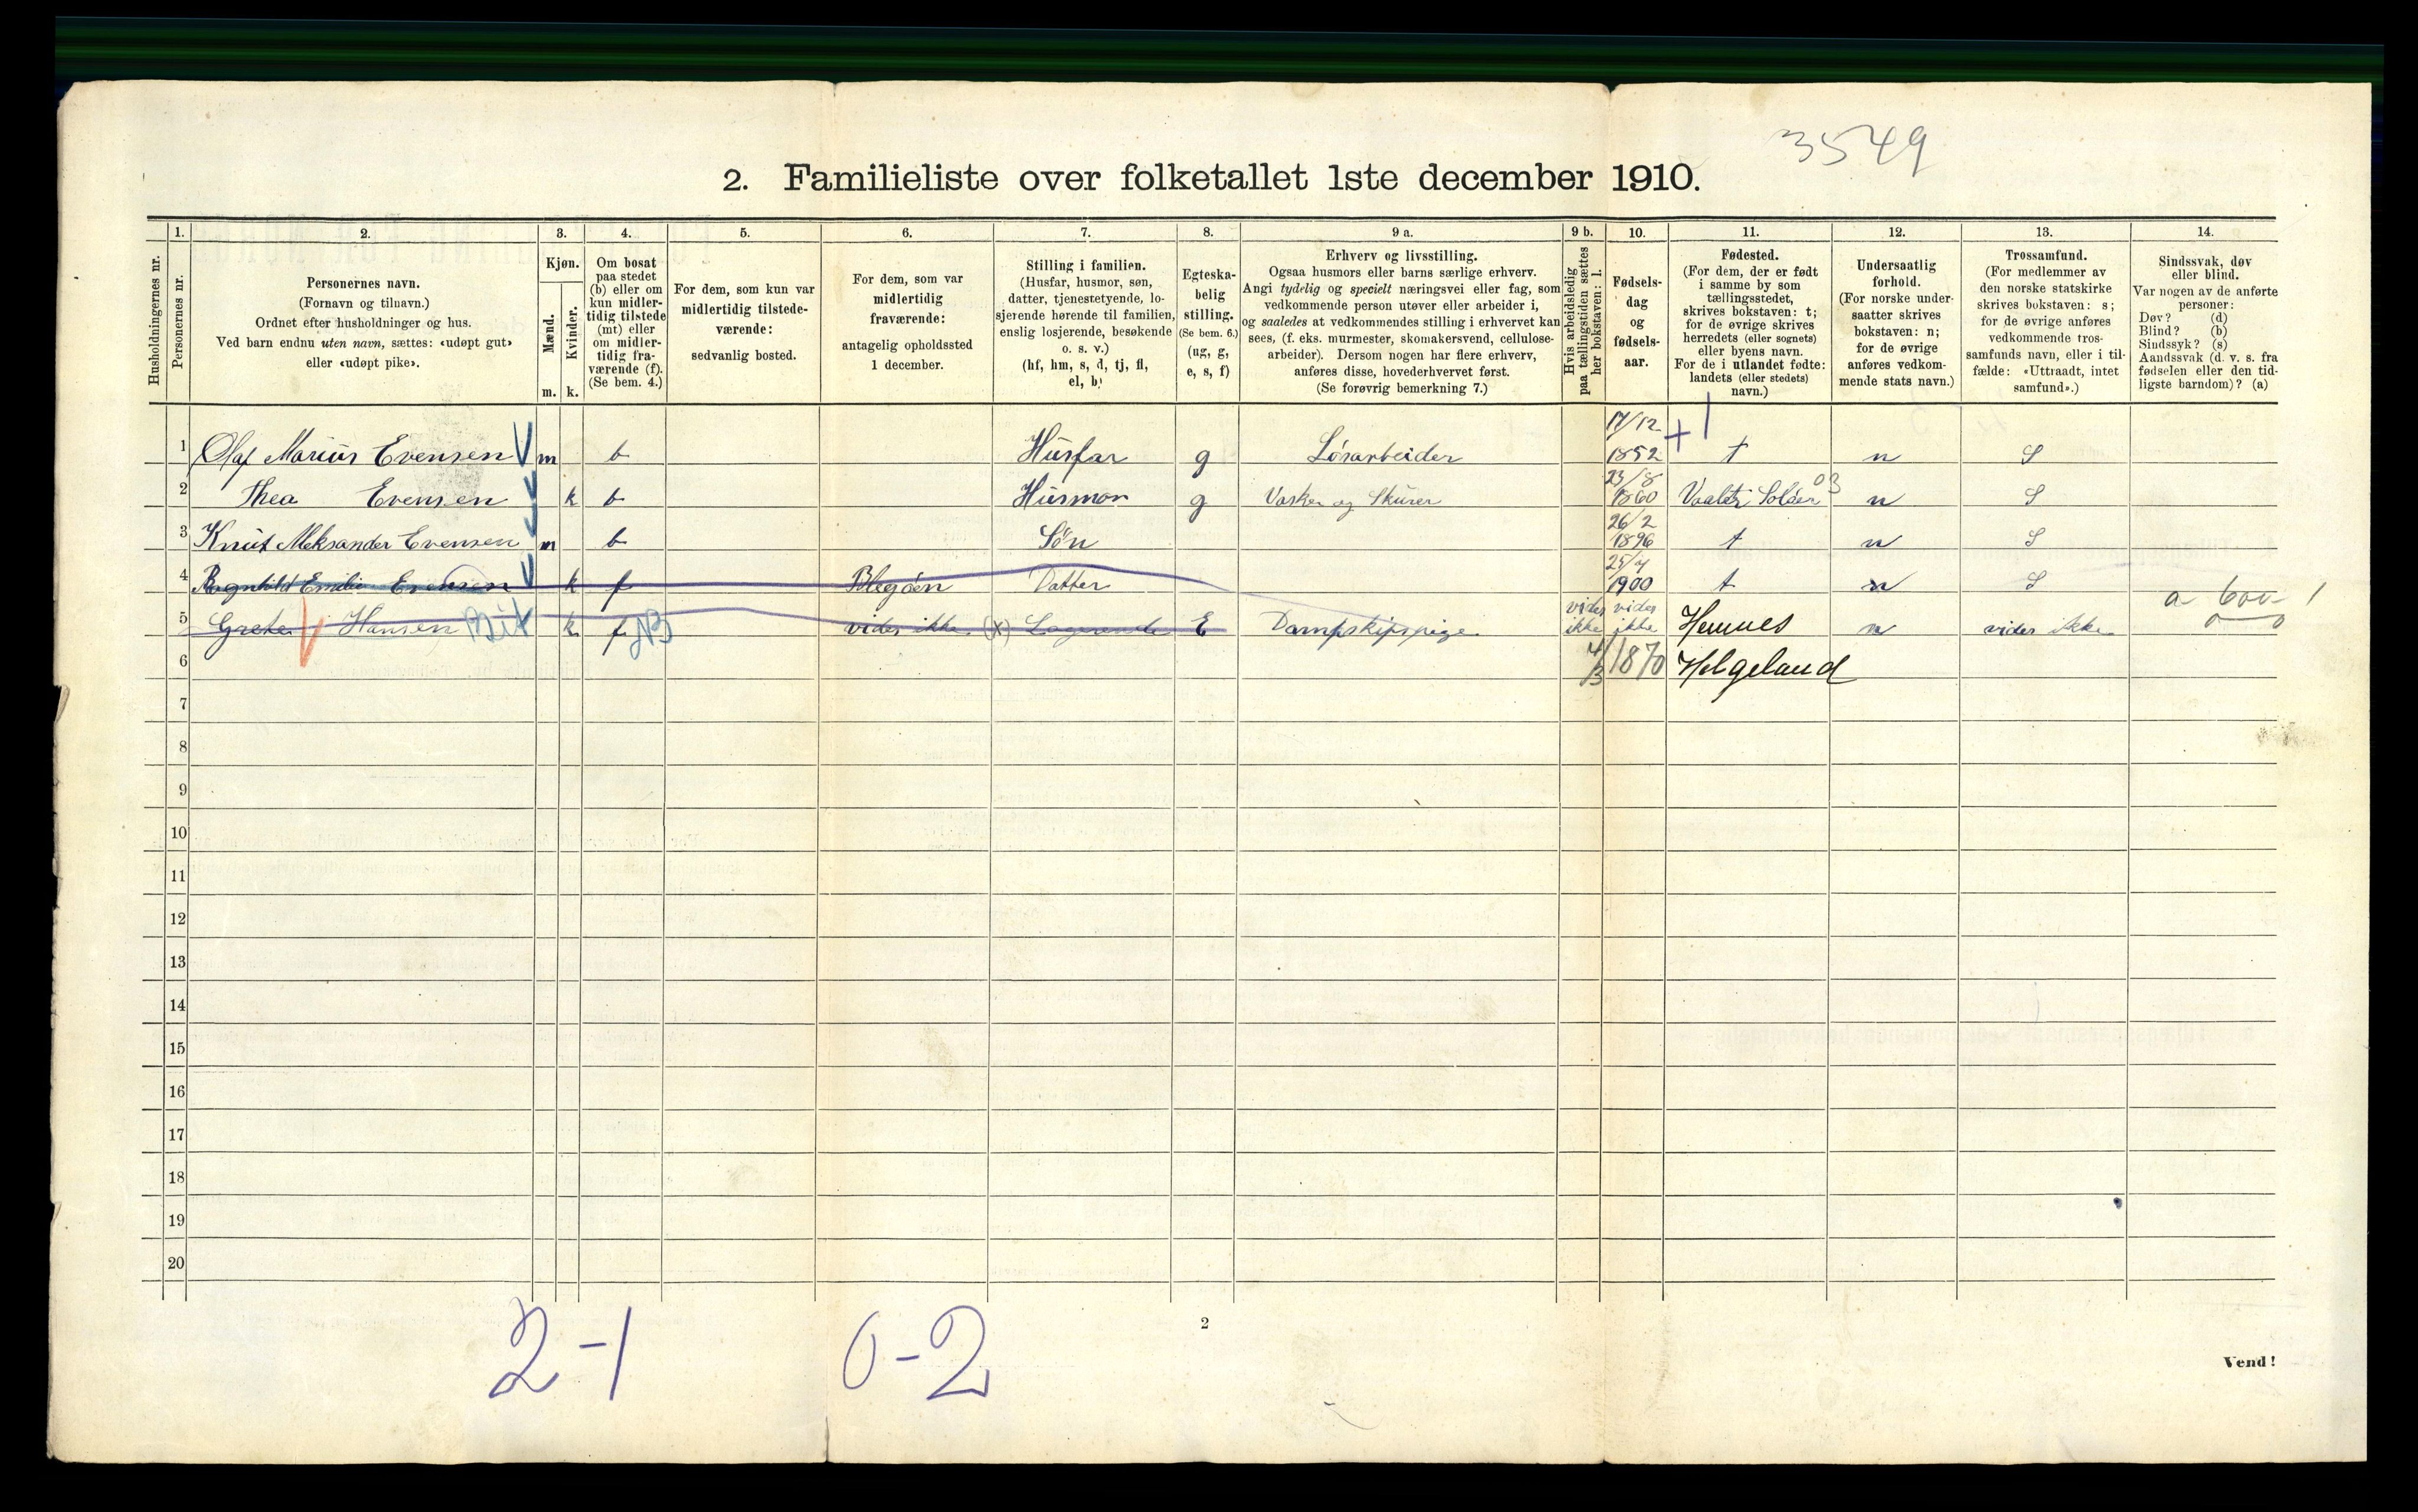 3549
2. Familieliste over folketallet 1ste december 1910.
Husholdningernes nr.
1. Personernes nr.
2. Personernes navn.
(Fornavn og tilnavn.)
Ordnet efter husholdninger og hus.
Ved barn endnu uten navn, sættes: «udøpt gut»
eller «udøpt pike».
3. Kjøn.
Mænd. m.
Kvinder. k.
4. Om bosat
paa stedet
(b) eller om
kun midler-
tidig tilstede
(mt) eller
om midler-
tidig fra-
værende (f).
(Se bem. 4.)
5. For dem, som kun var
midlertidig tilstede-
værende:
sedvanlig bosted.
6. For dem, som var
midlertidig
fraværende:
antagelig opholdssted
1 december.
7. Stilling i familien.
(Husfar, husmor, søn,
datter, tjenestetyende, lo-
sjerende hørende til familien,
enslig losjerende, besøkende
o. s. v.)
(hf, hm, s, d, tj, fl,
el, b)
8. Egteska-
belig
stilling.
(Se bem. 6.)
(ug, g,
e, s, f)
9 a. Erhverv og livsstilling.
Ogsaa husmors eller barns særlige erhverv.
Angi tydelig og specielt næringsvei eller fag, som
vedkommende person utøver eller arbeider i,
og saaledes at vedkommendes stilling i erhvervet kan
sees, (f. eks. murmester, skomakersvend, cellulose-
arbeider). Dersom nogen har flere erhverv,
anføres disse, hovederhvervet først.
(Se forøvrig bemerkning 7.)
9 b. Hvis arbeidsledig
paa tællingstiden sættes
her bokstaven: l.
10. Fødsels-
dag
og
fødsels-
aar.
11. Fødested.
(For dem, der er født
i samme by som
tællingsstedet,
skrives bokstaven: t;
for de øvrige skrives
herredets (eller sognets)
eller byens navn.
For de i utlandet fødte:
landets (eller stedets)
navn.)
12. Undersaatlig
forhold.
(For norske under-
saatter skrives
bokstaven: n;
for de øvrige
anføres vedkom-
mende stats navn.)
13. Trossamfund.
(For medlemmer av
den norske statskirke
skrives bokstaven: s;
for de øvrige anføres
vedkommende tros-
samfunds navn, eller i til-
fælde: «Uttraadt, intet
samfund».)
14. Sindssvak, døv
eller blind.
Var nogen av de anførte
personer:
Døv? (d)
Blind? (b)
Sindssyk? (s)
Aandssvak (d. v. s. fra
fødselen eller den tid-
ligste barndom)? (a)
1 Olaf Marius Evensen m b Husfar g Løsarbeider 17/12 1852 t n S
2 Thea Evensen k b Husmor g Vasker og Skurer 23/8 1860 Vaaler Soløer 03 n S
3 Knut Aleksander Evensen m b Søn 26/2 1896 t n S
4 Ragnhild Emilie Evensen k f Blegøen Datter 25/4 1900 t n S
5 Grete Hansen k f NB vides ikke (x) Logerende E Dampskipspige vides ikke vides ikke Hemnes n vides ikke
6 4/3 1870 Helgeland
7
8
9
10
11
12
13
14
15
16
17
18
19
20
2-1 0-2
2
Vend!